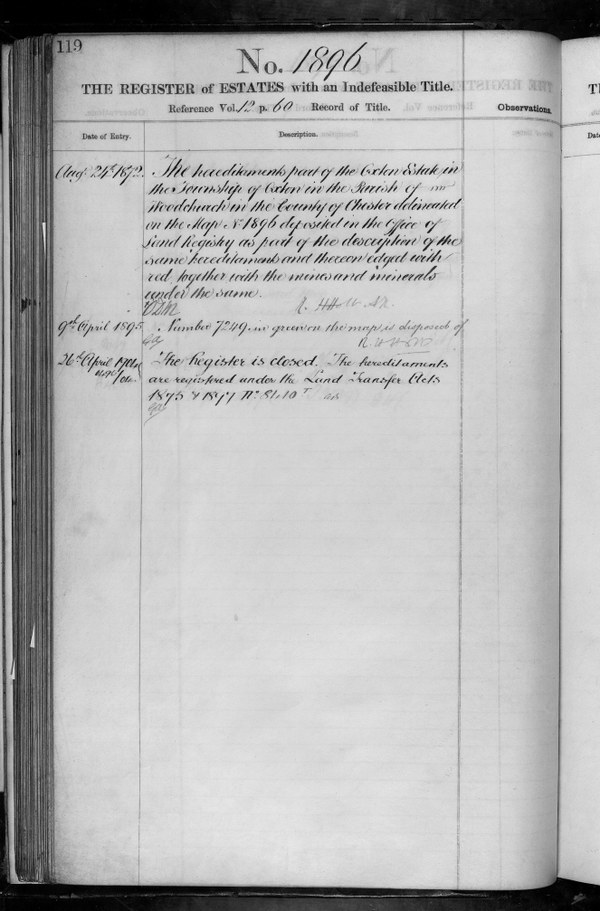 119
No. 1896
THE REGISTER of ESTATES with an Indefeasible Title.
Reference Vol. 12 p. 60 Record of Title.
Observations.
Date of Entry.
Description.
Augt 24th 1872. The hereditaments part of the Oxton Estate in
the Township of Oxton in the Parish of
Woodchurch in the County of Chester delineated
on the Map No 1896 deposited in the Office of
Land Registry as part of the description of the
same hereditaments and thereon edged with
red, together with the mines and minerals
under the same.
9th April 1895 Number 7249 in green on the map is disposed of
26th April 1901 The Register is closed. The hereditaments
are registered under the Land Transfer Acts
1875 & 1897 No